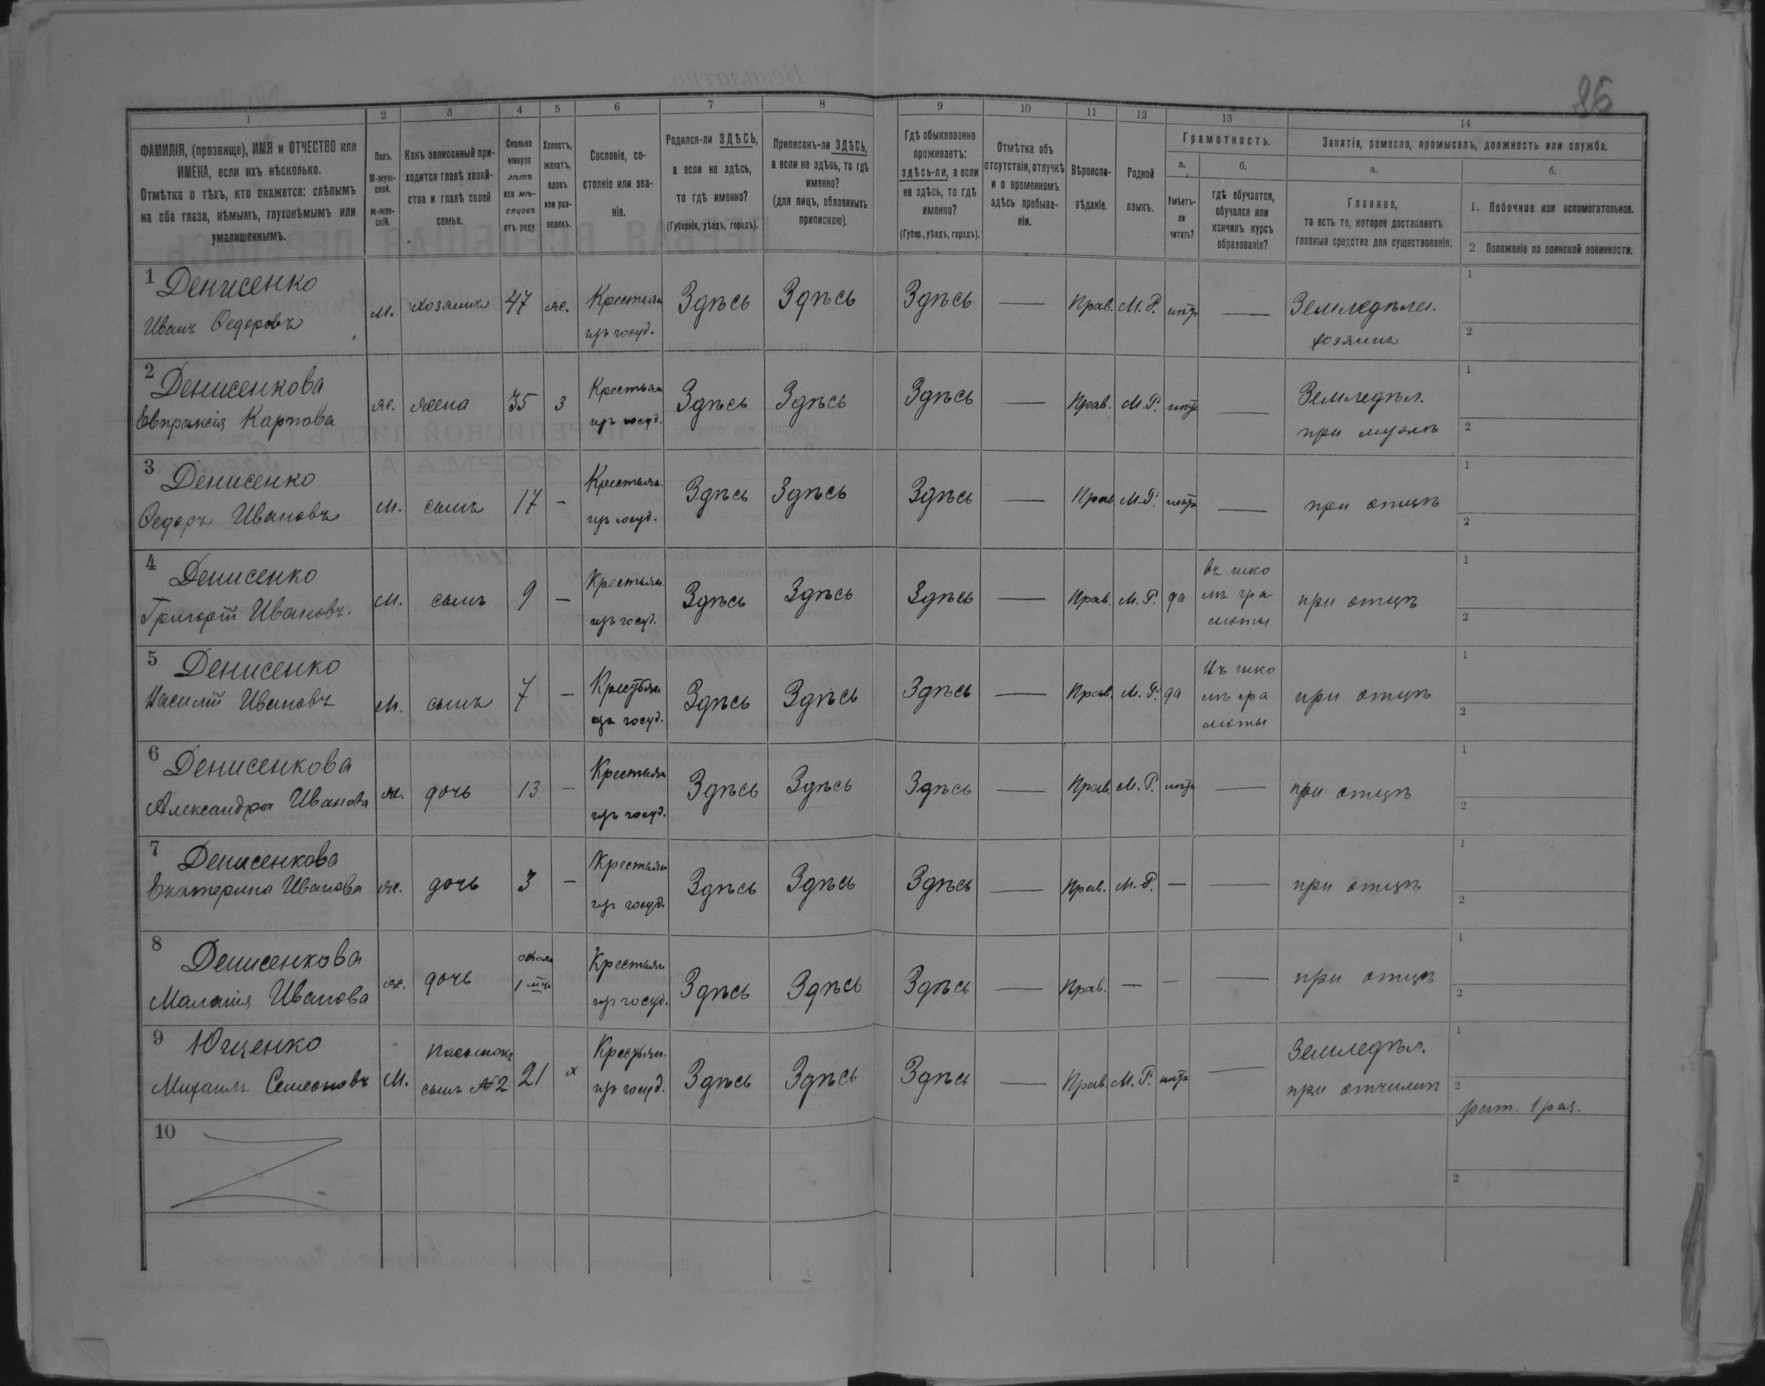 86
1 2 3 4 5 6 7 8 9 10 11 12 13 14
ФАМИЛІЯ, (прозвище), ИМЯ и ОТЧЕСТВО или
ИМЕНА, если ихъ нѣсколько.
Отмѣтка о тѣхъ, кто окажется: слѣпымъ
на оба глаза, нѣмымъ, глухонѣмымъ или
умалишеннымъ.
Полъ.
М-муж-
ской.
Ж-жен-
скій.
Какъ записанный при-
ходится главѣ хозяй-
ства и главѣ своей
семьи.
Сколько
минуло
лѣтъ
или мѣ-
сяцевъ
отъ роду.
Холостъ,
женатъ,
вдовъ
или раз-
веденъ.
Сословіе, со-
стояніе или зва-
ніе.
Родился-ли ЗДѢСЬ,
а если не здѣсь,
то гдѣ именно?
(Губернія, уѣздъ, городъ).
Приписанъ-ли ЗДѢСЬ,
а если не здѣсь, то гдѣ
именно?
(для лицъ, обязанныхъ
припискою).
Гдѣ обыкновенно
проживаетъ:
здѣсь-ли, а если
не здѣсь, то гдѣ
именно?
(Губер., уѣздъ, городъ).
Отмѣтка объ
отсутствіи, отлучкѣ
и о временномъ
здѣсь пребыва-
ніи.
Вѣроиспо-
вѣданіе.
Родной
языкъ.
Грамотность.
а.
Умѣетъ-
ли
читать?
б.
гдѣ обучается,
обучался или
кончилъ курсъ
образованія?
Занятія, ремесло, промыселъ, должность или служба.
а.
Главное,
то есть то, которое доставляетъ
главныя средства для существованія.
б.
1. Побочное или вспомогательное.
2 Положеніе по воинской повинности.
1 Денисенко
Иванъ Федоровъ
м. хозяинъ 47 ж. Крестьян изъ госуд. Здѣсь Здѣсь Здѣсь — Прав. М. Р. нѣтъ — Земледѣлец. хозяинъ
1
2
2 Денисенкова
Евпраксія Карпова
ж. жена 35 з Крестьян изъ госуд. Здѣсь Здѣсь Здѣсь — Прав. М. Р. нѣтъ — Земледѣл. при мужѣ
1
2
3 Денисенко
Федоръ Ивановъ
м. сынъ 17 — Крестьян. изъ госуд. Здѣсь Здѣсь Здѣсь — Прав. М. Р. нѣтъ — при отцѣ
1
2
4 Денисенко
Григорій Ивановъ.
м. сынъ 9 — Крестьян. изъ госуд. Здѣсь Здѣсь Здѣсь — Прав. М. Р. да въ шко лѣ гра моты при отцѣ
1
2
5 Денисенко
Василій Ивановъ
м. сынъ 7 — Крестьян изъ госуд. Здѣсь Здѣсь Здѣсь — Прав. М. Р. да въ шко лѣ гра моты при отцѣ
1
2
6 Денисенкова
Александра Иванова
ж. дочь 13 — Крестьян изъ госуд. Здѣсь Здѣсь Здѣсь — Прав. М. Р. нѣтъ — при отцѣ
1
2
7 Денисенкова
Екатерина Иванова
ж. дочь 3 — Крестьян изъ госуд. Здѣсь Здѣсь Здѣсь — Прав. М. Р. — — при отцѣ
1
2
8 Денисенкова
Маланія Иванова
ж. дочь 1 мца Крестьян изъ госуд. Здѣсь Здѣсь Здѣсь — Прав. — — — при отцѣ
1
2
9 Ющенко
Михаилъ Семеоновъ
м. пасынокъ сынъ № 2 21 х Крестьян. изъ госуд. Здѣсь Здѣсь Здѣсь — Прав. М. Р. нѣтъ — Земледѣл. при отчимѣ
1
2
рат. 1 раз.
10
1
2